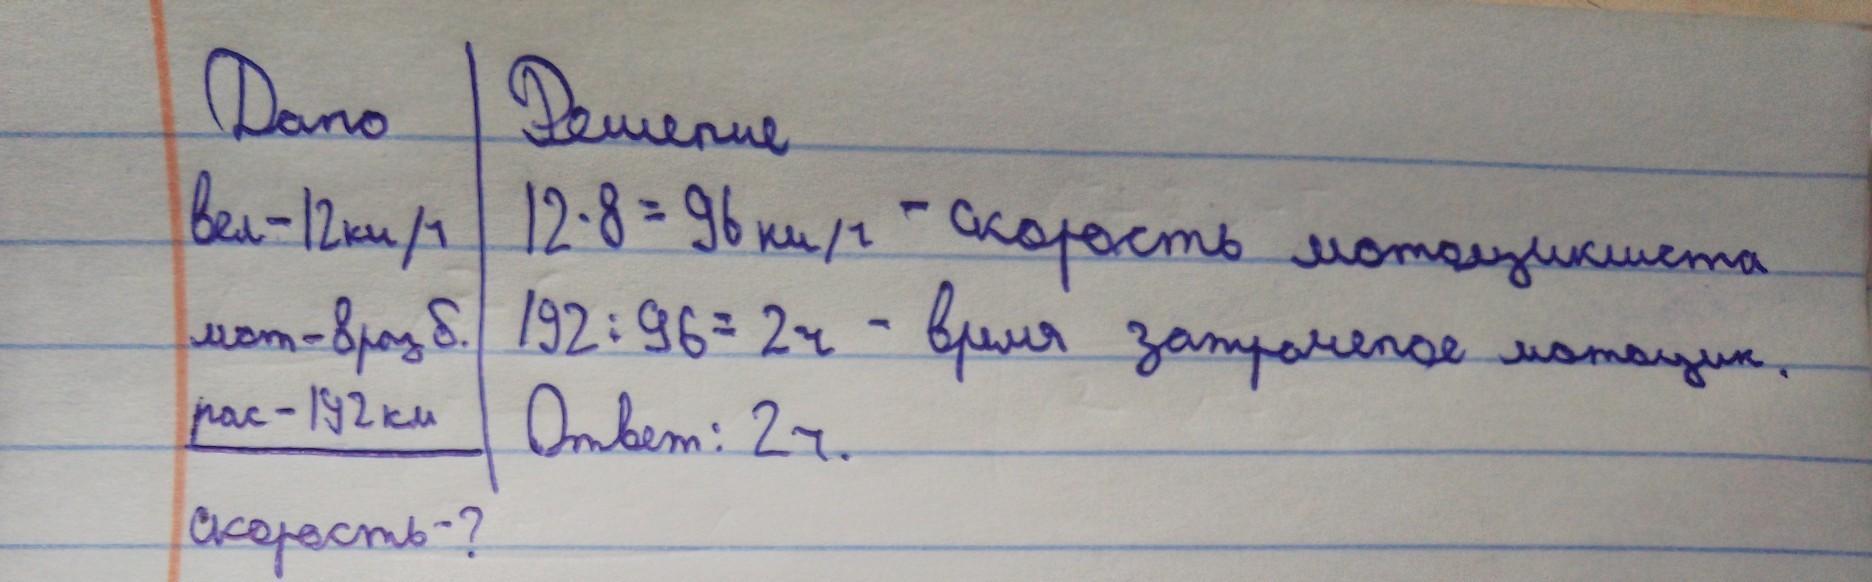 Дано
вел-12км/ч
мот-8раз б.
рас-192км
скорость-?
Решение
12·8=96км/ч - скорость мотоциклиста
192:96=2ч - время затраченое мотоцик.
Ответ: 2ч.